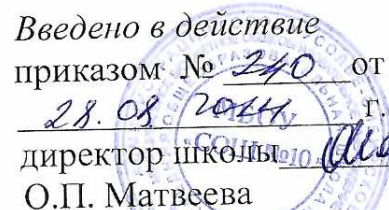 Введено в действие
приказом № 240 от
28.08 г.
директор школы
О.П. Матвеева
СОШ №10